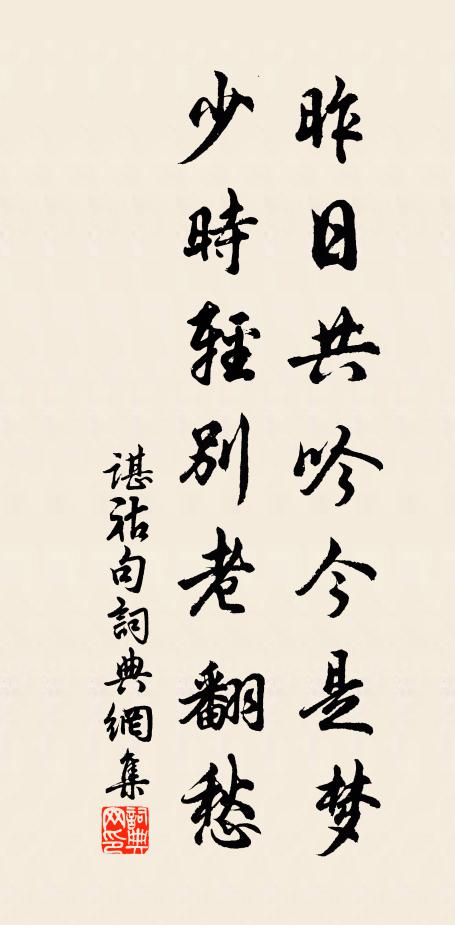 昨日共吟今是梦
少時輕別老翻愁
谌祜句詞典網集
詞典网印